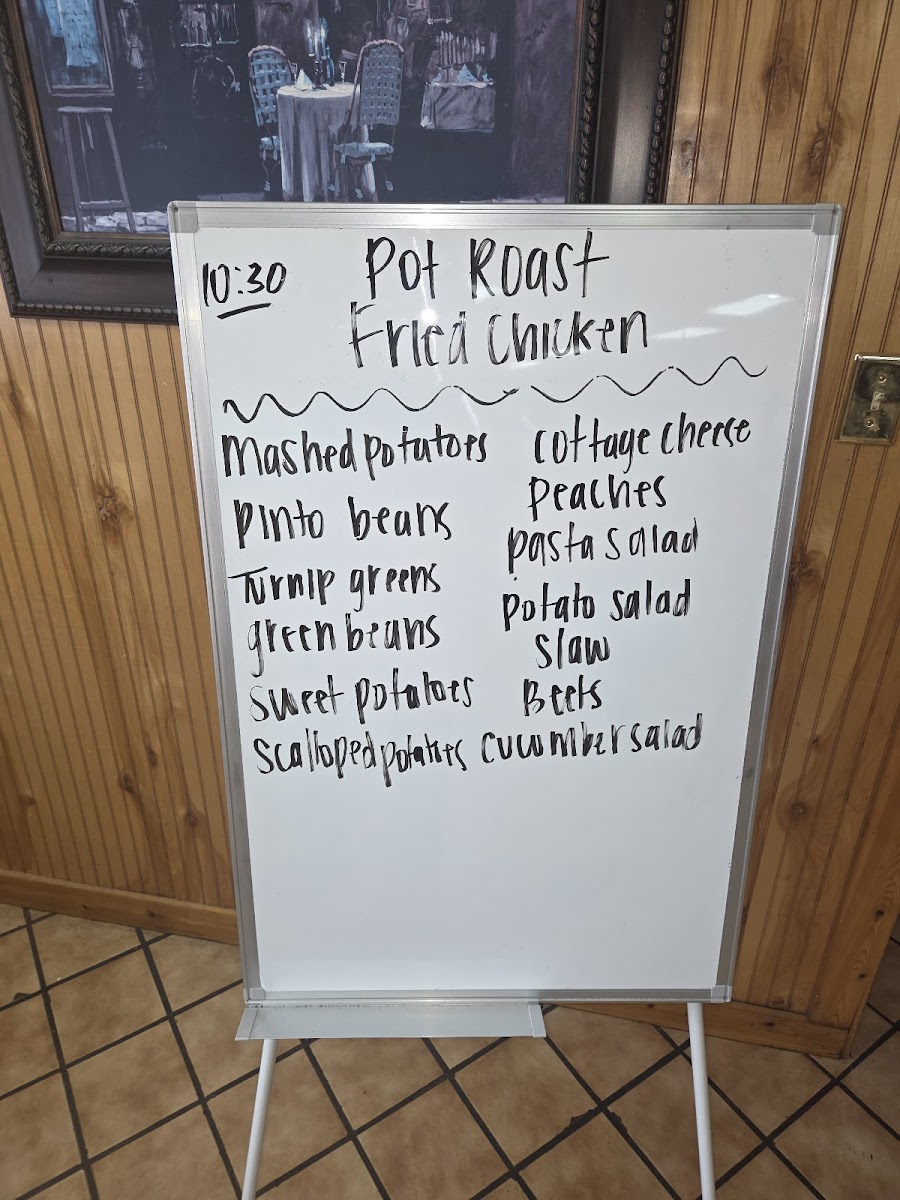 10:30
Pot Roast
Fried Chicken
Mashed potatoes
Pinto beans
Turnip greens
green beans
sweet potatoes
scalloped potatoes
cottage cheese
Peaches
pasta salad
potato salad
slaw
Beets
cucumber salad